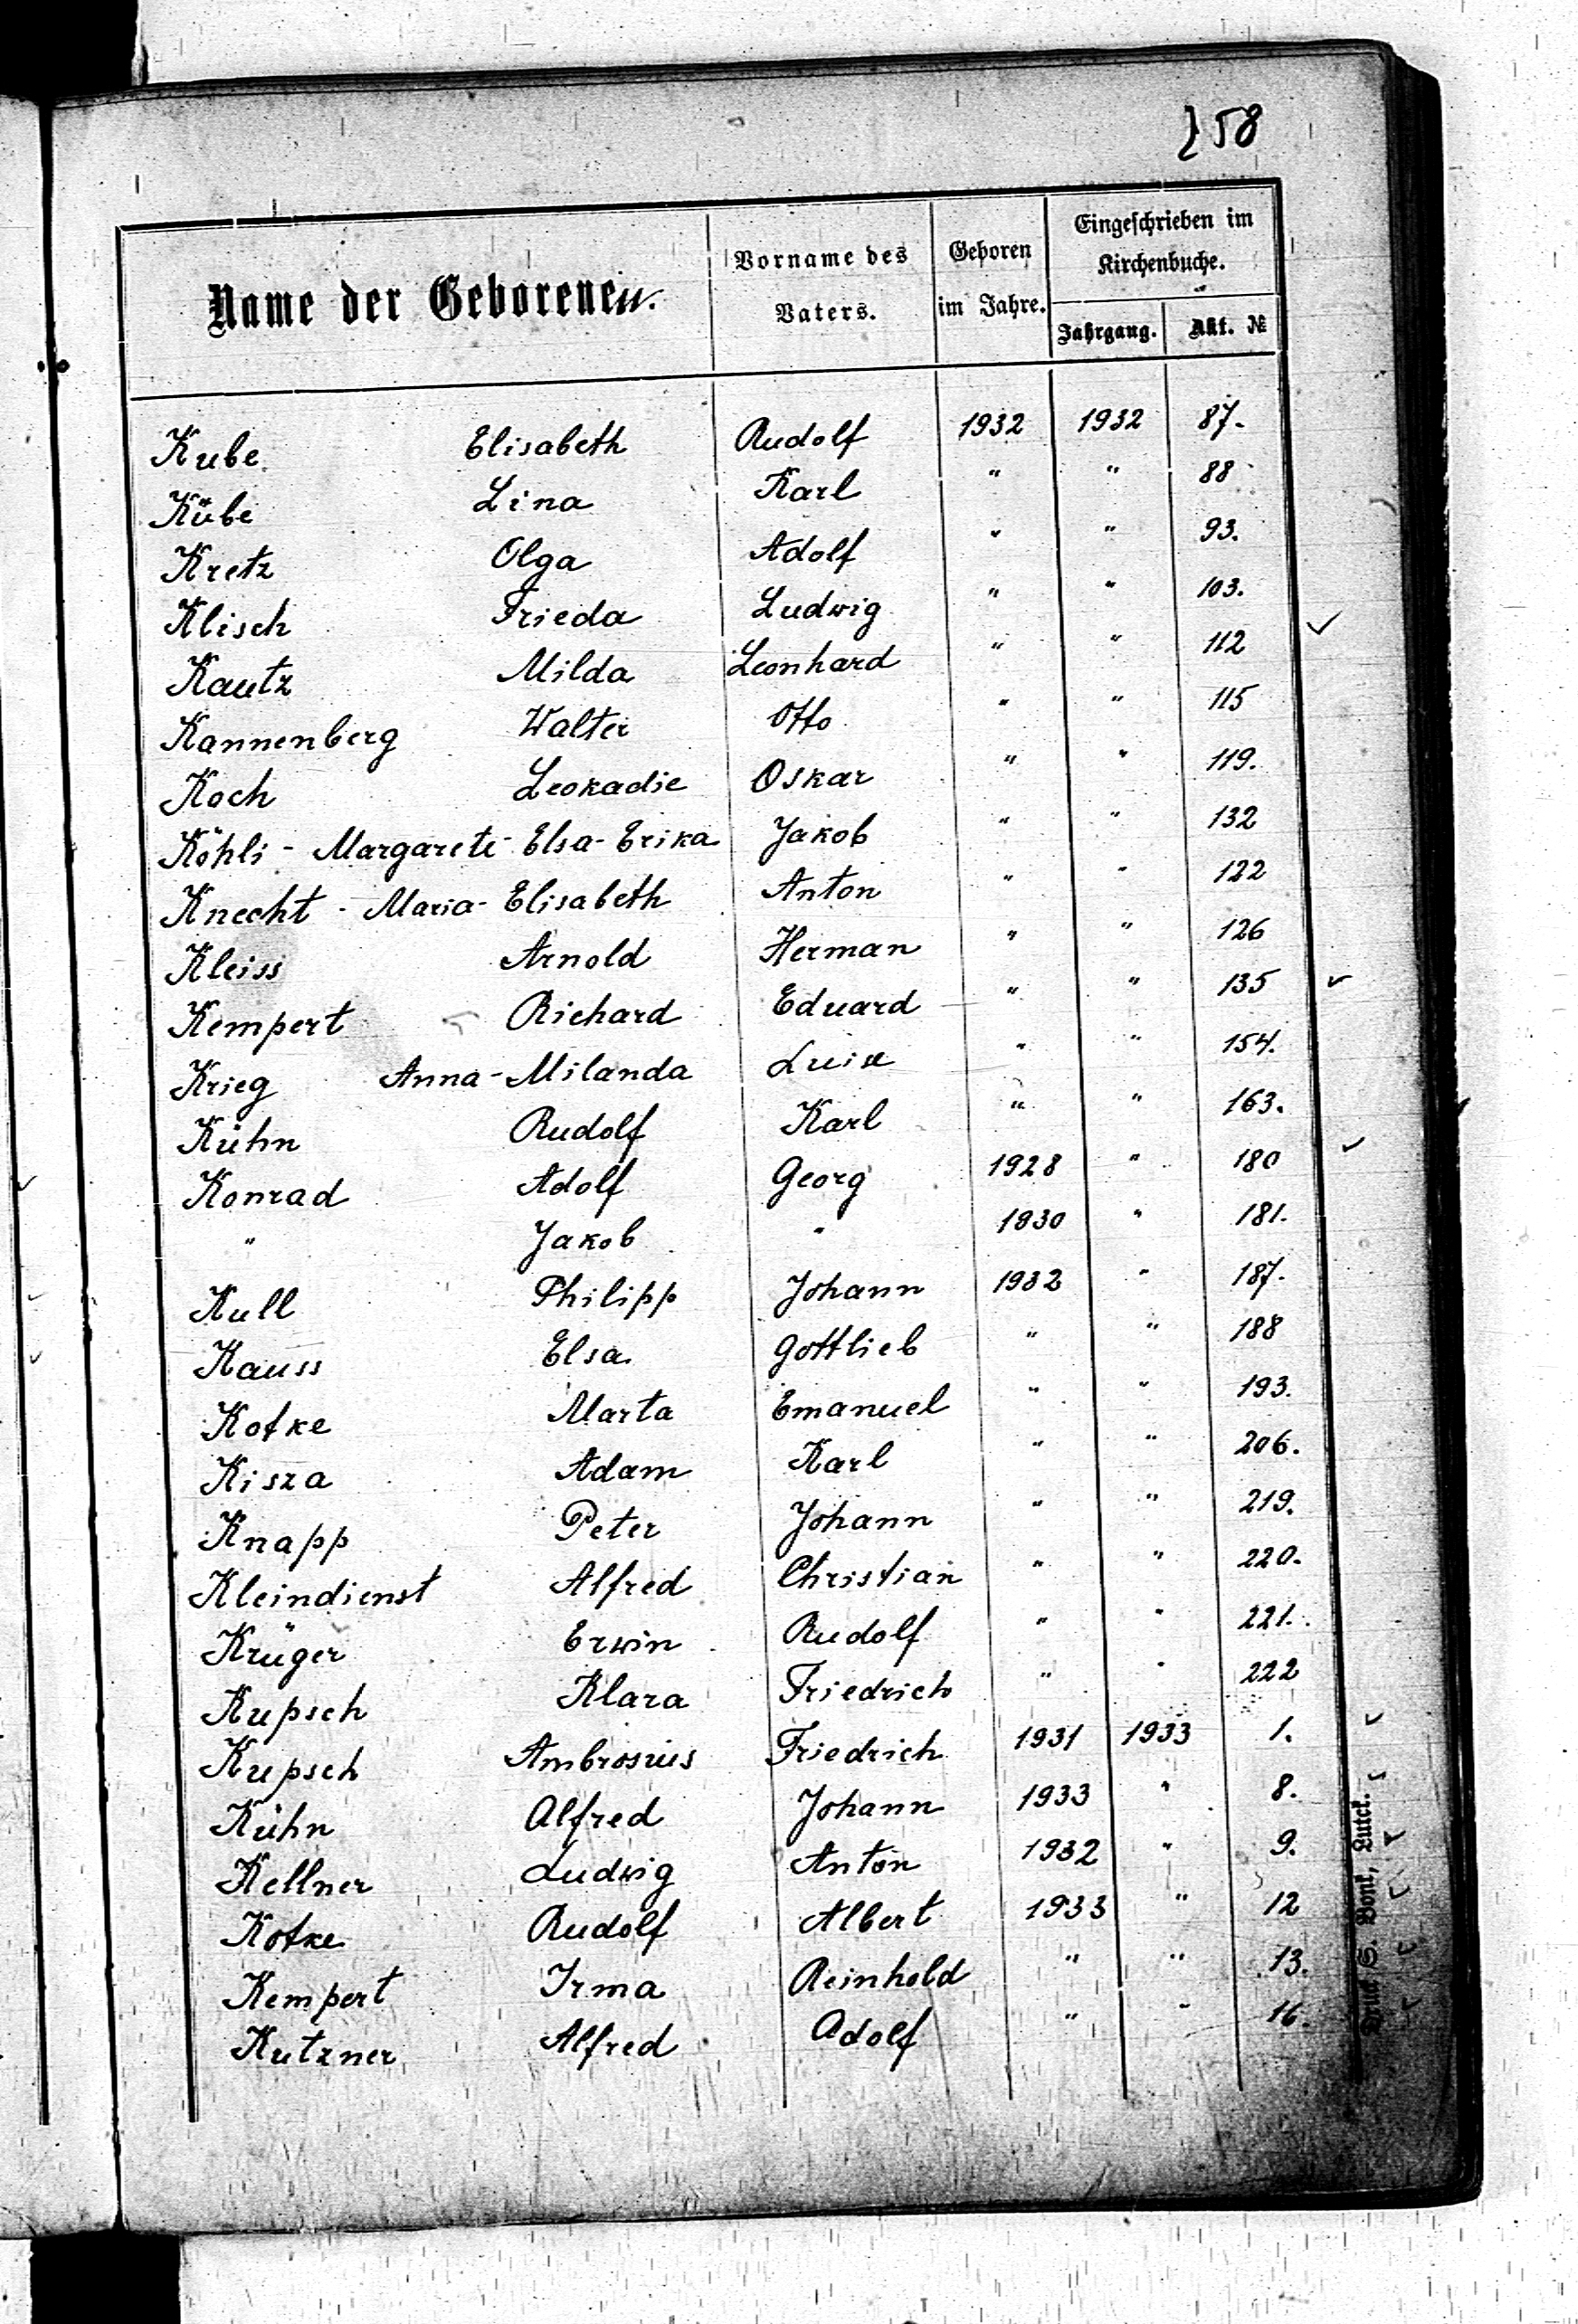 258
Name der Geborenen.
Vorname des Vaters.
Geboren im Jahre.
Eingeschrieben im Kirchenbuche.
Jahrgang.
Akt. №
Kube Elisabeth Rudolf 1932 1932 87.
Kübe Lina Karl " " 88
Kretz Olga Adolf " " 93.
Klisch Frieda Ludwig " " 103.
Kautz Milda Leonhard " " 112
Kannenberg Walter Otto " " 115
Koch Leokadie Oskar " " 119.
Köhli - Margarete - Elsa - Erika Jakob " " 132
Knecht - Maria - Elisabeth Anton " " 122
Kleiss Arnold Herman " " 126
Kempert Richard Eduard " " 135
Krieg Anna - Milanda Luise " " 154.
Kühn Rudolf Karl " " 163.
Konrad Adolf Georg 1928 " 180
" Jakob " 1930 " 181.
Kull Philipp Johann 1932 " 187.
Kauss Elsa Gottlieb " " 188
Kotke Marta Emanuel " " 193.
Kisza Adam Karl " " 206.
Knapp Peter Johann " " 219.
Kleindienst Alfred Christian " " 220.
Krüger Erwin Rudolf " " 221.
Kupsch Klara Friedrich " " 222
Kupsch Ambrosius Friedrich 1931 1933 1.
Kühn Alfred Johann 1933 " 8.
Kellner Ludwig Anton 1932 " 9.
Kotke Rudolf Albert 1933 " 12
Kempert Irma Reinhold " " 13.
Kutzner Alfred Adolf " " 16.
Druck S. Bonk, Luck.